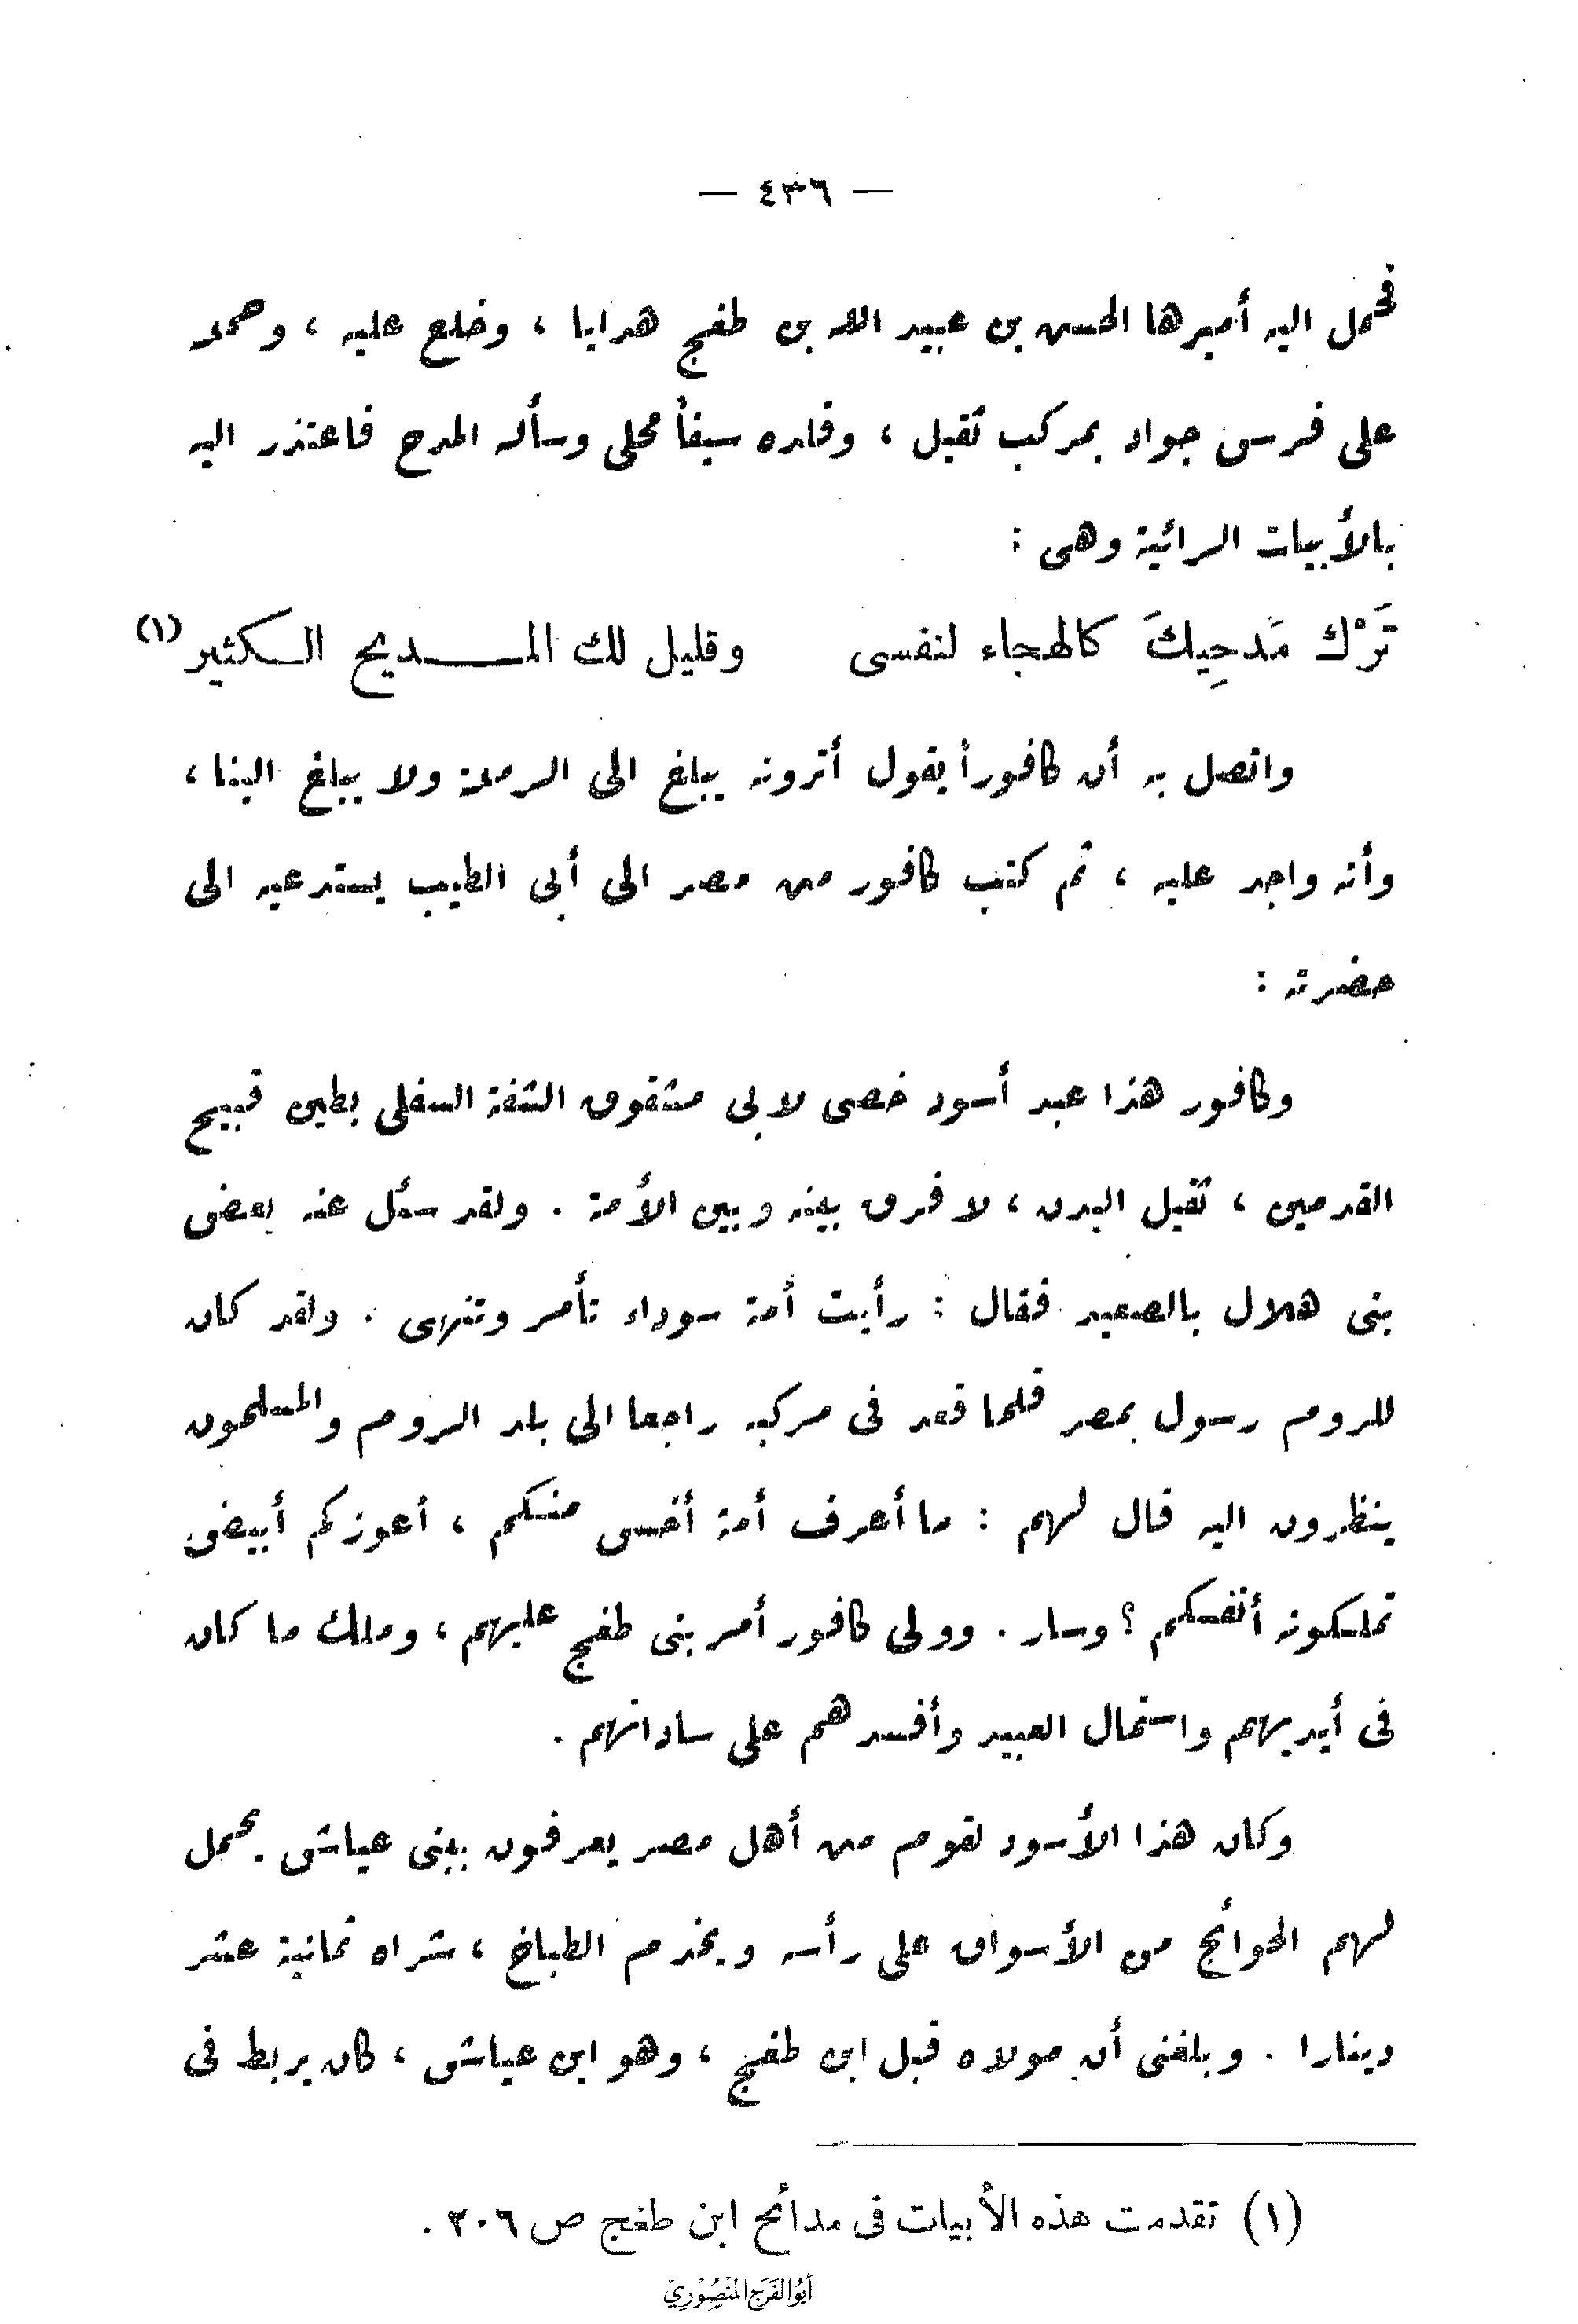 — ٤٣٦ —
فحمل اليه أميرها الحسن بن عبيد الله بن طغج هدايا ، وخلع عليه ، وحمله
على فرس جواد بمركب ثقيل ، وقلده سيفاً محلى وسأله المدح فاعتذر اليه
بالأبيات الرائية وهى :
تَرْك مَدحِيكَ كالهجاء لنفسى وقليل لك المـــديح الـكثير (١)
واتصل به أن كافوراً يقول أترونه يبلغ الى الرملة ولا يبلغ الينا ،
وأنه واجد عليه ، ثم كتب كافور من مصر الى أبى الطيب يستدعيه الى
حضرته :
وكافور هذا عبد أسود خصى لابى مثقوق الشفة السفلى بطين قبيح
القدمين ، ثقيل البدن ، لا فرق بينه وبين الأمة . ولقد سئل عنه بعض
بنى هلال بالصعيد فقال : رأيت أمة سوداء تأمر وتنهى . ولقد كان
للروم رسول بمصر فلما قعد فى مركبه راجعا الى بلد الروم والمسلمون
ينظرون اليه قال لهم : ما أعرف أمة أخس منكم ، أعوزكم أبيض
تملكونه أنفسكم ؟ وسار . وولى كافور أمر بنى طغج عليهم ، وملك ما كان
فى أيديهم واستمال العبيد وأفسدهم على ساداتهم .
وكان هذا الأسود لقوم من أهل مصر يعرفون ببنى عياش يحمل
لهم الحوائج من الأسواق على رأسه ويخدم الطباخ ، شراه ثمانية عشر
دينارا . وبلغنى أن مولاه قبل ابن طغج ، وهو ابن عياش ، كان يربط فى
(١) تقدمت هذه الأبيات فى مدائح ابن طغج ص ٢٠٦ .
أبُو الفَرَج المَنْصُوْرِيّ